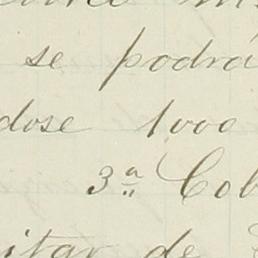 se podrá
dose 1000
3ª Cob
itar de